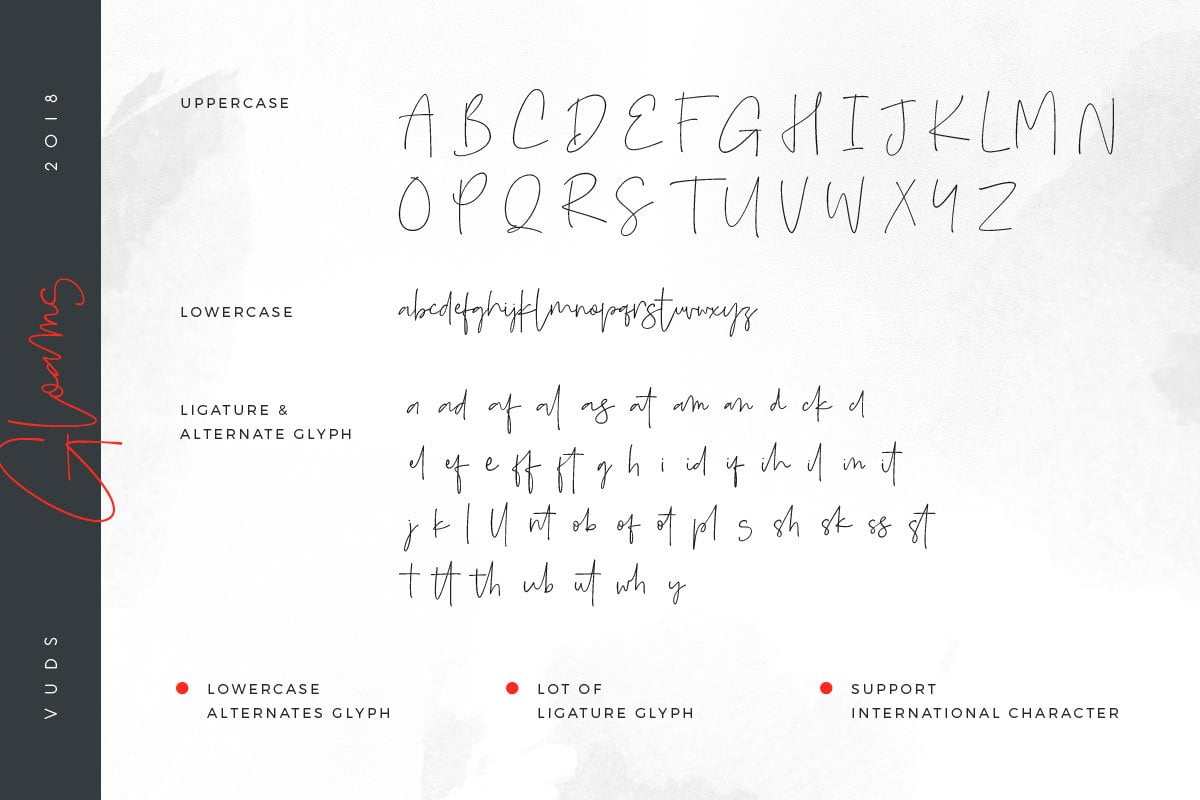 2018
Gloams
VUDS
UPPERCASE
A B C D E F G H I J K L M N
O P Q R S T U V W X Y Z
LOWERCASE
abcdefghijklmnopqrstuvwxyz
LIGATURE &
ALTERNATE GLYPH
a ad af al as at am an d ck d
el ef e ff ft g h i id if ih il in it
j k l ll nt ob of ot pl s sh sk ss st
t tt th ub ut wh y
LOWERCASE
ALTERNATES GLYPH
LOT OF
LIGATURE GLYPH
SUPPORT
INTERNATIONAL CHARACTER